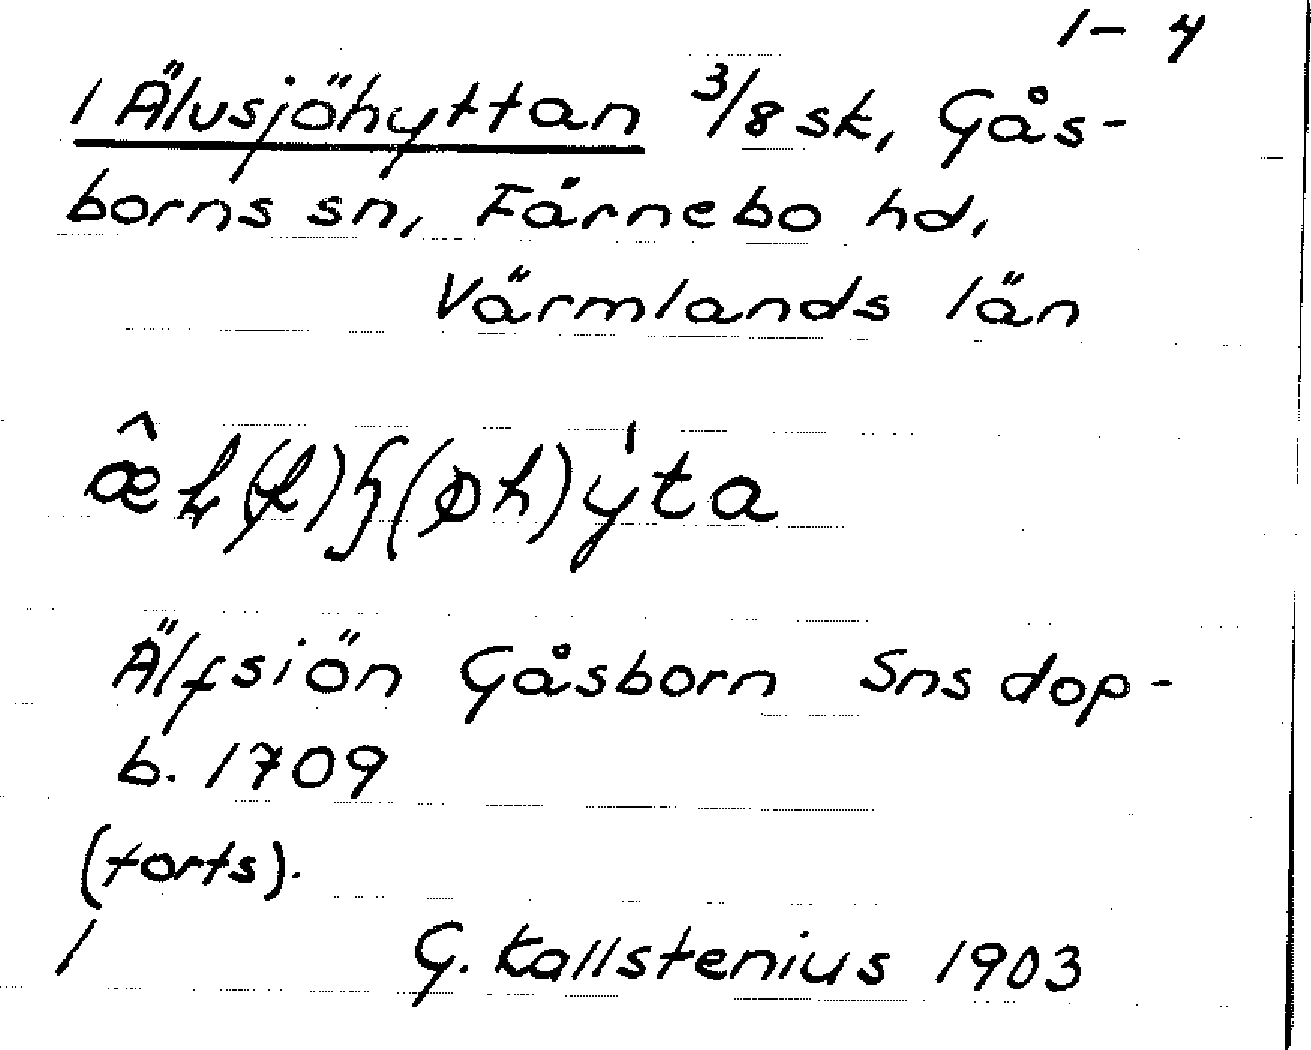 1-4
1 Älvsjöhyttan 3/8 sk, Gås-
borns sn, Färnebo hd,
Värmlands län
Älfsiön Gåsborn Sns dop-
b. 1709
(forts).
1 G. Kallstenius 1903